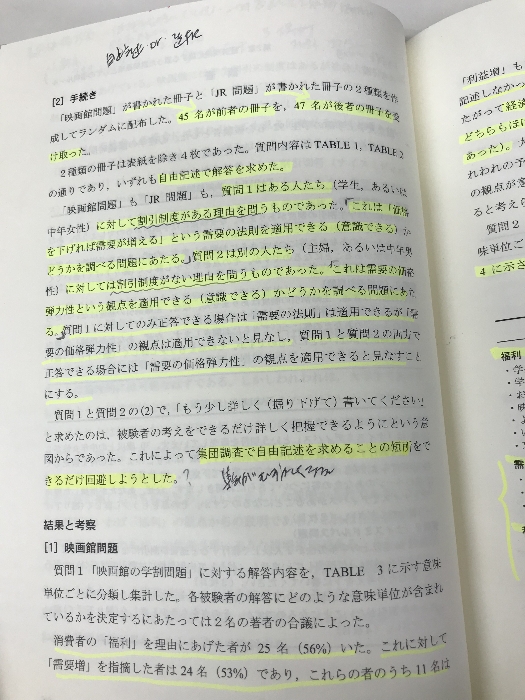 [2] 手続き
「映画館問題」が書かれた冊子と「JR 問題」が書かれた冊子の2種類を作
成してランダムに配布した。45 名が前者の冊子を，47 名が後者の冊子を受
け取った。
2種類の冊子は表紙を除き4枚であった。質問内容は TABLE 1, TABLE 2
の通りであり，いずれも自由記述で解答を求めた。
「映画館問題」も「JR 問題」も，質問1はある人たち（学生，あるいは
中年女性）に対して割引制度がある理由を問うものであった。これは「価格
を下げれば需要が増える」という需要の法則を適用できる（意識できる）か
どうかを調べる問題にあたる。質問2は別の人たち（主婦，あるいは中年男
性）に対しては割引制度がない理由を問うものであった。これは需要の価格
弾力性という観点を適用できる（意識できる）かどうかを調べる問題にあた
る。質問1に対してのみ正答できる場合は「需要の法則」は適用できるが「需
要の価格弾力性」の観点は適用できないと見なし，質問1と質問2の両方で
正答できる場合には「需要の価格弾力性」の観点を適用できると見なすこと
にする。
質問1と質問2の(2)で，「もう少し詳しく（掘り下げて）書いてください」
と求めたのは，被験者の考えをできるだけ詳しく把握できるようにという意
図からであった。これによって集団調査で自由記述を求めることの短所をで
きるだけ回避しようとした。?
結果と考察
[1] 映画館問題
質問1「映画館の学割問題」に対する解答内容を，TABLE 3 に示す意味
単位ごとに分類し集計した。各被験者の解答にどのような意味単位が含まれ
ているかを決定するにあたっては2名の著者の合議によった。
消費者の「福利」を理由にあげた者が 25 名（56%）いた。これに対して
「需要増」を指摘した者は 24 名（53%）であり，これらの者のうち 11 名は
「利益増」も
記述しなかっ
たがって経済
どちらもほ
あった）。
われわれの予
の観点が意
ると考えら
質問 2
味単位ご
4 に示さ
福利